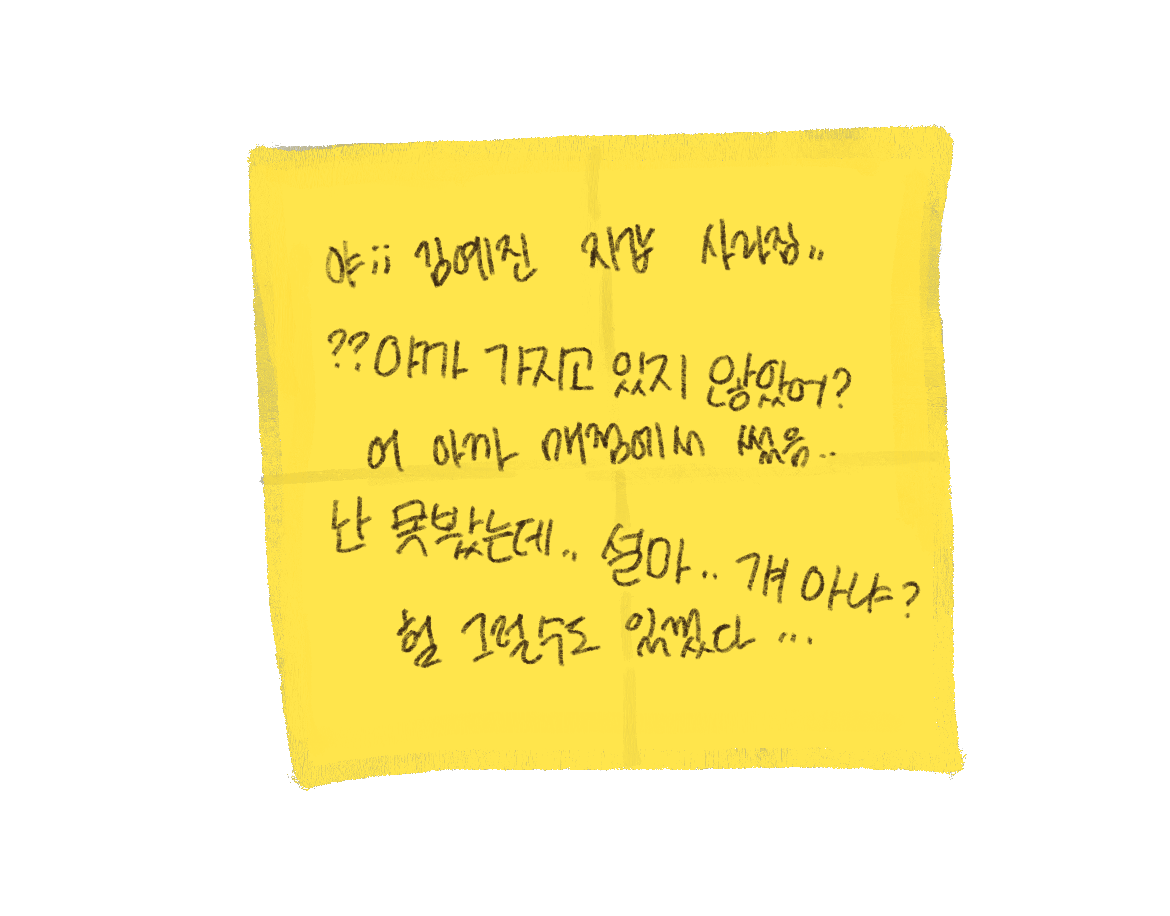 야;; 김예진 지갑 사라짐..
??아까 가지고 있지 않았어?
어 아까 매점에서 썼음..
난 못봤는데.. 설마.. 걔 아냐?
헐 그럴수도 있겠다 ...